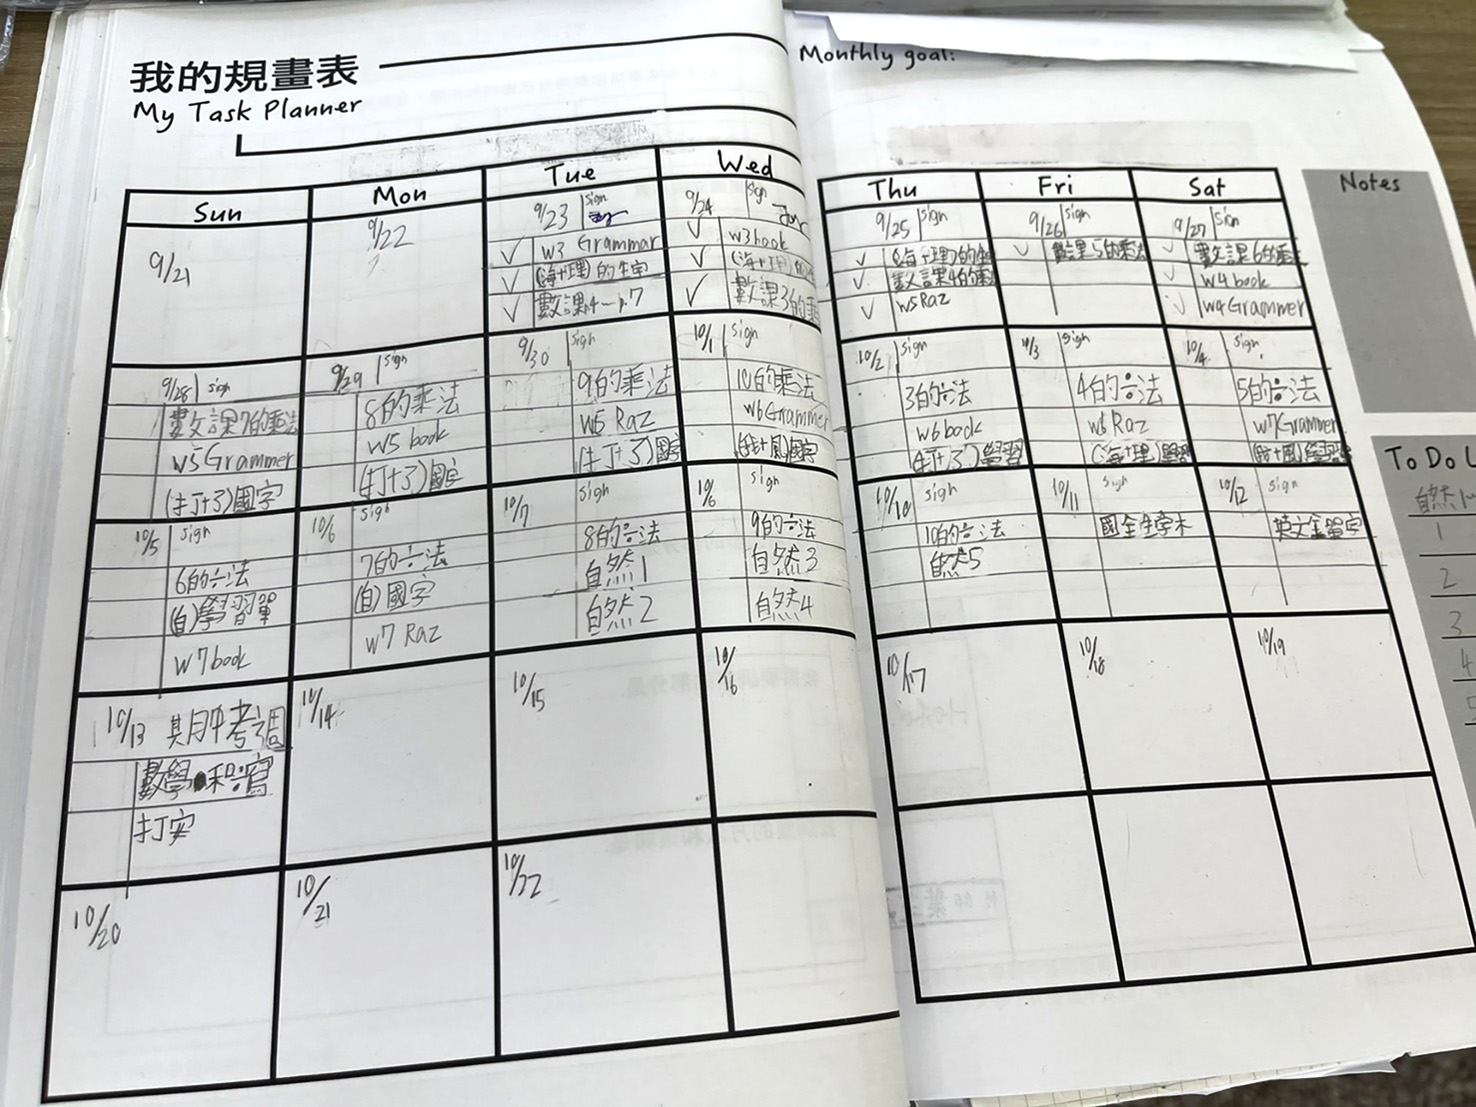 我的規畫表
My Task Planner
Monthly goal:
Sun
Mon
Tue
Wed
Thu
Fri
Sat
Notes
9/21
9/22
9/23 sign
✓ w3 Grammar
✓ (海+理)的生字
✓ 數課4-1.7
9/24 sign
✓ w3book
✓ (海+理)的
✓ 數課3的乘
9/25 sign
✓ (海+理)的生
✓ 數課4的乘
✓ w5Raz
9/26 sign
✓ 數課5的乘法
9/27 sign
✓ 數課6的乘法
✓ w4book
✓ w4Grammer
9/28 sign
數課7的乘法
w5Grammer
(打+了)國字
9/29 sign
8的乘法
w5 book
(打+了)國字
9/30 sign
9的乘法
w5 Raz
(打+了)國字
10/1 sign
10的乘法
w6Grammer
(我+風)國字
10/2 sign
3的÷法
w6book
(打+了)學習
10/3 sign
4的÷法
w6 Raz
(海+理)學習
10/4 sign
5的÷法
w7Grammer
(我+風)學習
To Do L
自然
1
2
3
4
5
10/5 sign
6的÷法
(自)學習單
w7book
10/6 sign
7的÷法
(自)國字
w7 Raz
10/7 sign
8的÷法
自然1
自然2
10/6 sign
9的÷法
自然3
自然4
10/10 sign
10的÷法
自然5
10/11 sign
國全生字本
10/12 sign
英文全單字
10/13 期中考週
數學
10/14
10/15
10/16
10/17
10/18
10/19
10/20
10/21
10/22